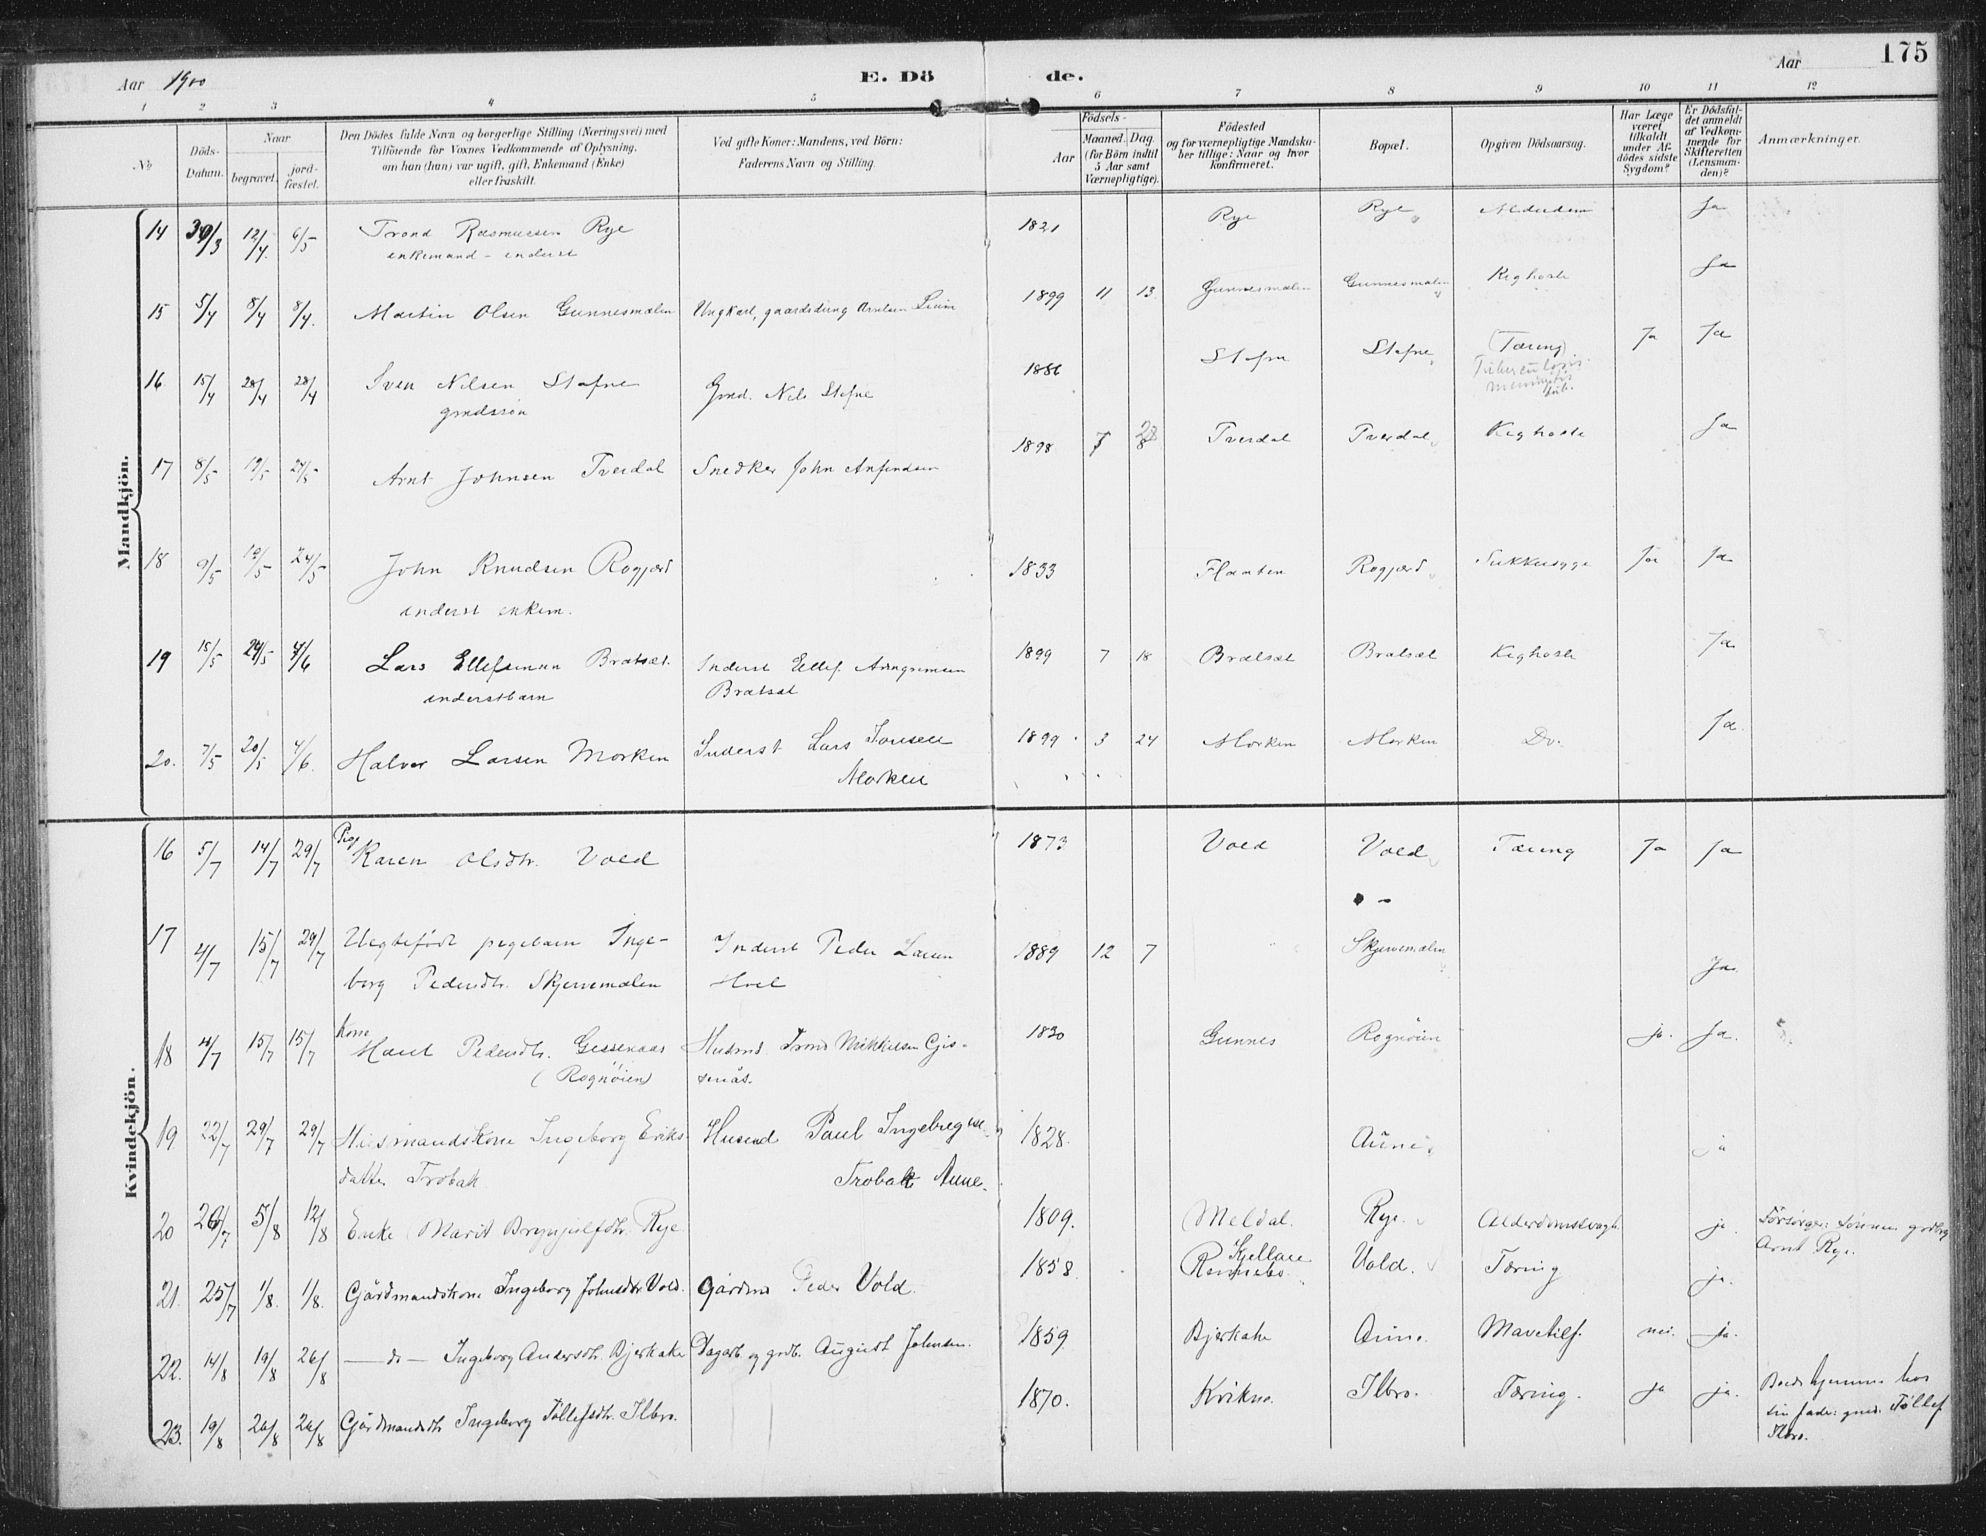 175
Aar 1900
E. Döde.
Aar
1 2 3 4 5 6 7 8 9 10 11 12
No
Döds-Datum.
Naar
begravet.
jord-fæstet.
Den Dödes fulde Navn og borgerlige Stilling (Næringsvei) med
Tilföiende for Voxnes Vedkommende af Oplysning,
om han (hun) var ugift, gift, Enkemand (Enke)
eller fraskilt.
Ved gifte Koner: Mandens, ved Börn:
Faderens Navn og Stilling.
Födsels-
Aar
Maaned. Dag.
(for Börn indtil
5 Aar samt
Værnepligtige).
Födested
og for værnepligtige Mandskaber tillige: Naar og hvor
konfirmeret.
Bopæl.
Opgiven Dödsaarsag.
Har Læge
været
tilkaldt
under Afdödes sidste
Sygdom?
Er Dödsfaldet anmeldt
af Vedkommende for
Skifteretten
(Lensmanden)?
Anmærkninger.
Mandkjön.
14 30/3 12/4 6/5 Trond Rasmussen Rye 1821 Rye Rye Ja
enkemand - inderst
15 5/4 8/4 8/4. Martin Olsen Gunnesmælen Ungkarl, 1899 11 13 Gunnesmælen Gunnesmælen Kighoste Ja
16 15/4 28/4 28/4 Sven Nilsen Stefne Gmd. Nils Stefne 1886 Stefne Stefne (Tæring) Ja Ja
gmdssøn
Tuberculosis
meningitis
tub.
17 8/5 19/5 24/5 Arnt Johnsen Tverdal Snedker John Anfindsen 1898 7 28 Tverdal Tverdal Kighoste Ja
18 9/5 19/5 24/5 John Knudsen Rogjærd 1833 Flaaten Rogjærd Sukkersyge Ja Ja
inderst enkem.
19 15/5 24/5 4/6 Lars Ellefsen Bratset Inderst Ellef Arngrimsen 1899 7 18 Brætsæt Bratsæt Kighoste Ja
inderstbarn Bratsæt
20. 7/5 20/5 4/6. Halvor Larsen Morken Inderst Lars Jonsen 1899 3 24 Morken Morken Do. Ja
Morken
Kvindekjön.
16 5/7 14/7 29/7 Pige Karen Olsdtr. Vold 1873 Vold Vold Tæring Ja Ja
17 4/7 15/7 29/7 Uegtefödt pigebarn Inge- Inderst Peder Larsen 1889 12 7 Skjervemælen Ja
borg Pedersdtr. Skjervemælen Hoel
18 4/7 15/7 15/7 Kone Marit Pedersdtr. Gissenaas Husmd Trond Mikkelsen Gis- 1830 Gunnes Rognöien ja. Ja.
(Rognöien) senås.
19 22/7 29/7 29/7 Husmandskone Ingeborg Eriks- Husmd Paul Ingebrigtse 1828. Aune ja
datter Trobak Trobakk Aune.
20 26/7 5/8 12/8 Enke Marit Brynjulfsdtr. Rye 1809. Meldal. Rye. Alderdomssvagh. ja. Forsörger: Sönnen gdbr
Arnt Rye.
21. 25/7 1/8. 1/8. Gårdmandskone Ingeborg Johnsdtr. Vold. Gårdmd Peder Vold. 1858. Rennebo. Vold. Tæring ja.
22. 14/8 19/8 26/8 — do — Ingeborg Andersdtr. Bjerkake Dagarb. og gdb. August Johnsen. 1859. Bjerkake Aune. Mavetilf. nei. ja.
23. 19/8 26/8 26/8 Gårdmandsdtr. Ingeborg Töllefsdtr. Ilbro. 1870. Kvikne. Ilbro. Tæring. ja ja. Boede hjemme hos
sin fader: gmd. Töllef
Ilbro.